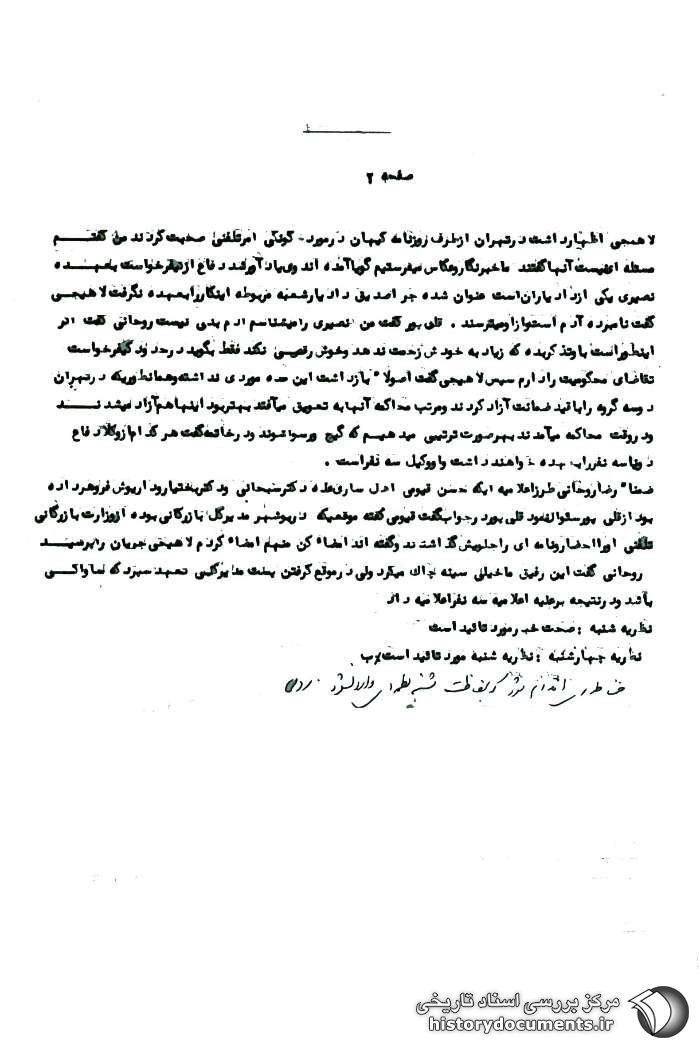 صفحه ۲
لاهیجی اظهارداشت درتهران ازطرف روزنامه کیهان درمورد- گونگی امرتلفنی صحبت کردند من گفتم
مسئله ای نیست آنها گفتند ماخبرنگاروعکاس میفرستیم گویا آمده اند وی یاد آورشد دفاع ازکیفرخواست بعهده
نصیری یکی ازدادیاران است عنوان شده جز اصدیق دادیارشعبه مربوطه اینکاررابعهده نگرفت لاهیجی
گفت نامبرده آدم است وازاومیترسند . قلی پور گفت من نصیری رامیشناسم ادم بدی نیست روحانی گفت اگر
اینطوراست باوتذکربده که زیاد به خودش زحمت ندهد وخوش رقصی نکند فقط بگوید درحدود کیفرخواست
تقاضای محکومیت رادارم سپس لاهیجی گفت اصولا" بازداشت این عده موردی نداشته وهمانطوریکه درتهران
دوسه گروه راباقید ضمانت آزاد کردند ومرتب محاکمه آنها به تعویق میافتد بهتربود اینهاهم آزاد میشدند
ودروقت محاکمه میآمدند بهرصورت ترتیبی میدهیم که گیج ورسواشوند ودرخاتمه گفت هرکدام ازوکلا دفاع
دوتاسه نفررابعهده خواهند داشت واووکیل سه نفراست .
ضمنا" رضاروحانی طرزاعلامیه اینکه حسن قیومی اهل ساری علیه دکترسنجابی ودکتربختیاروداریوش فروهرداده
بود ازقلی پورسئوال نمود قلی پوردرجواب گفت قیومی گفته موقعیکه درنوشهر مدیرکل بازرگانی بوده ازوزارت بازرگانی
تلفنی اورااحضارونامه ای راجلویش گذاشتند وگفته اند امضاء کن منهم امضاء کردم لاهیجی جریان راپرسید
روحانی گفت این رفیق ماخیلی سینه چاک میکرد ولی درموقع گرفتن پست مدیرکلی تعهد سپرد که ساواکی
باشد ودرنتیجه برعلیه اعلامیه سه نفراعلامیه داد
نظریه شنبه : صحت خبرمورد تائید است
نظریه چهارشنبه : نظریه شنبه مورد تائید است
مرکز بررسی اسناد تاریخی
historydocuments.ir